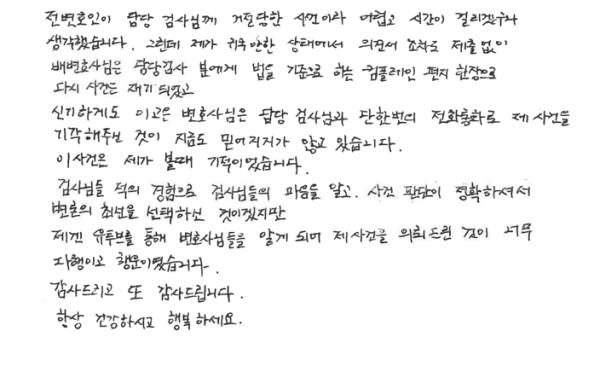 전변호인이 담당 검사님께 거절당한 사건이라 어렵고 시간이 걸리겠구나
생각했습니다. 그런데 제가 귀국 안한 상태에서 의견서 조차도 제출 없이
배변호사님은 담당검사 분에게 법을 기준으로 하는 컴플레인 편지 한장으로
다시 사건은 재기 되었고
신기하게도 이고은 변호사님은 담당 검사님과 단 한번의 전화통화로 제 사건을
기각해주신 것이 지금도 믿어지지가 않고 있습니다.
이사건은 제가 볼때 기적이였습니다.
검사님들 적의 경험으로 검사님들의 마음을 알고. 사건 판단이 정확하셔서
변호의 최선을 선택하신 것이겠지만
제겐 유투브를 통해 변호사님들을 알게 되어 제사건을 의뢰드린 것이 너무
다행이고 행운이였습니다.
감사드리고 또 감사드립니다.
항상 건강하시고 행복하세요.